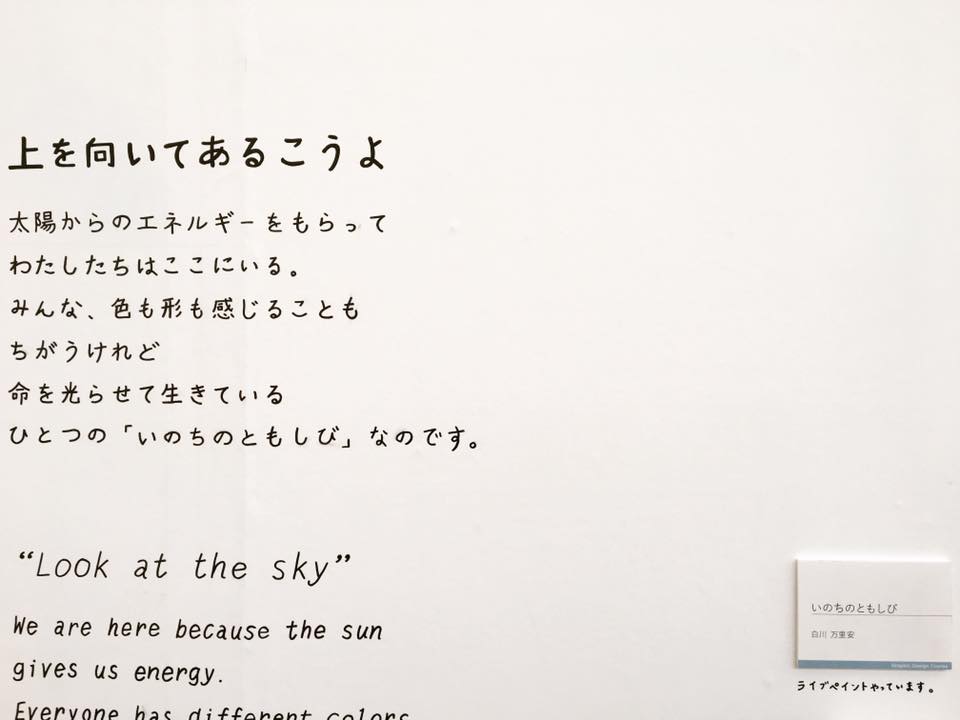 上を向いてあるこうよ
太陽からのエネルギーをもらって
わたしたちはここにいる。
みんな、色も形も感じることも
ちがうけれど
命を光らせて生きている
ひとつの「いのちのともしび」なのです。
“Look at the sky”
We are here because the sun
gives us energy.
Everyone has different colors
いのちのともしび
白川 万里安
Graphic Design Course
ライブペイントやっています。